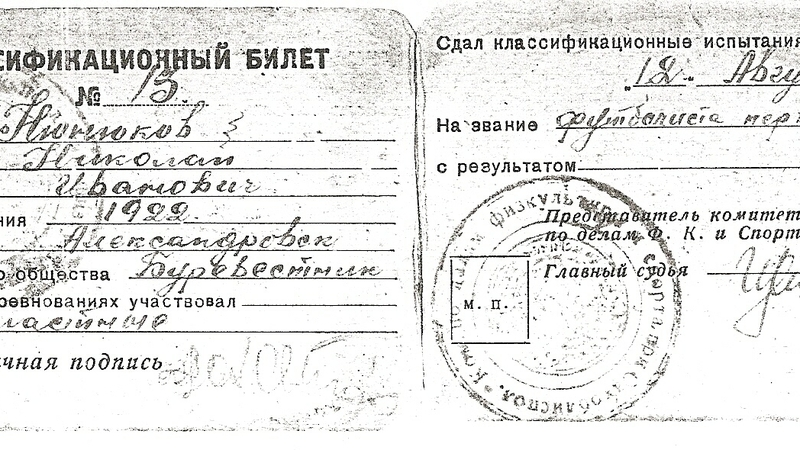 СИФИКАЦИОННЫЙ БИЛЕТ
№ 13.
Нюнюков
Николай
Иванович
ния 1922
Александровск
о общества Буревестник
ревнованиях участвовал
ластные
чная подпись
Сдал классификационные испытания
"12" Авгу
На звание футболиста пер
с результатом
Представитель комитет
по делам Ф. К. и Спорт
Главный судья
м. п.
физкультуры и спорта при Сахоблиспол.